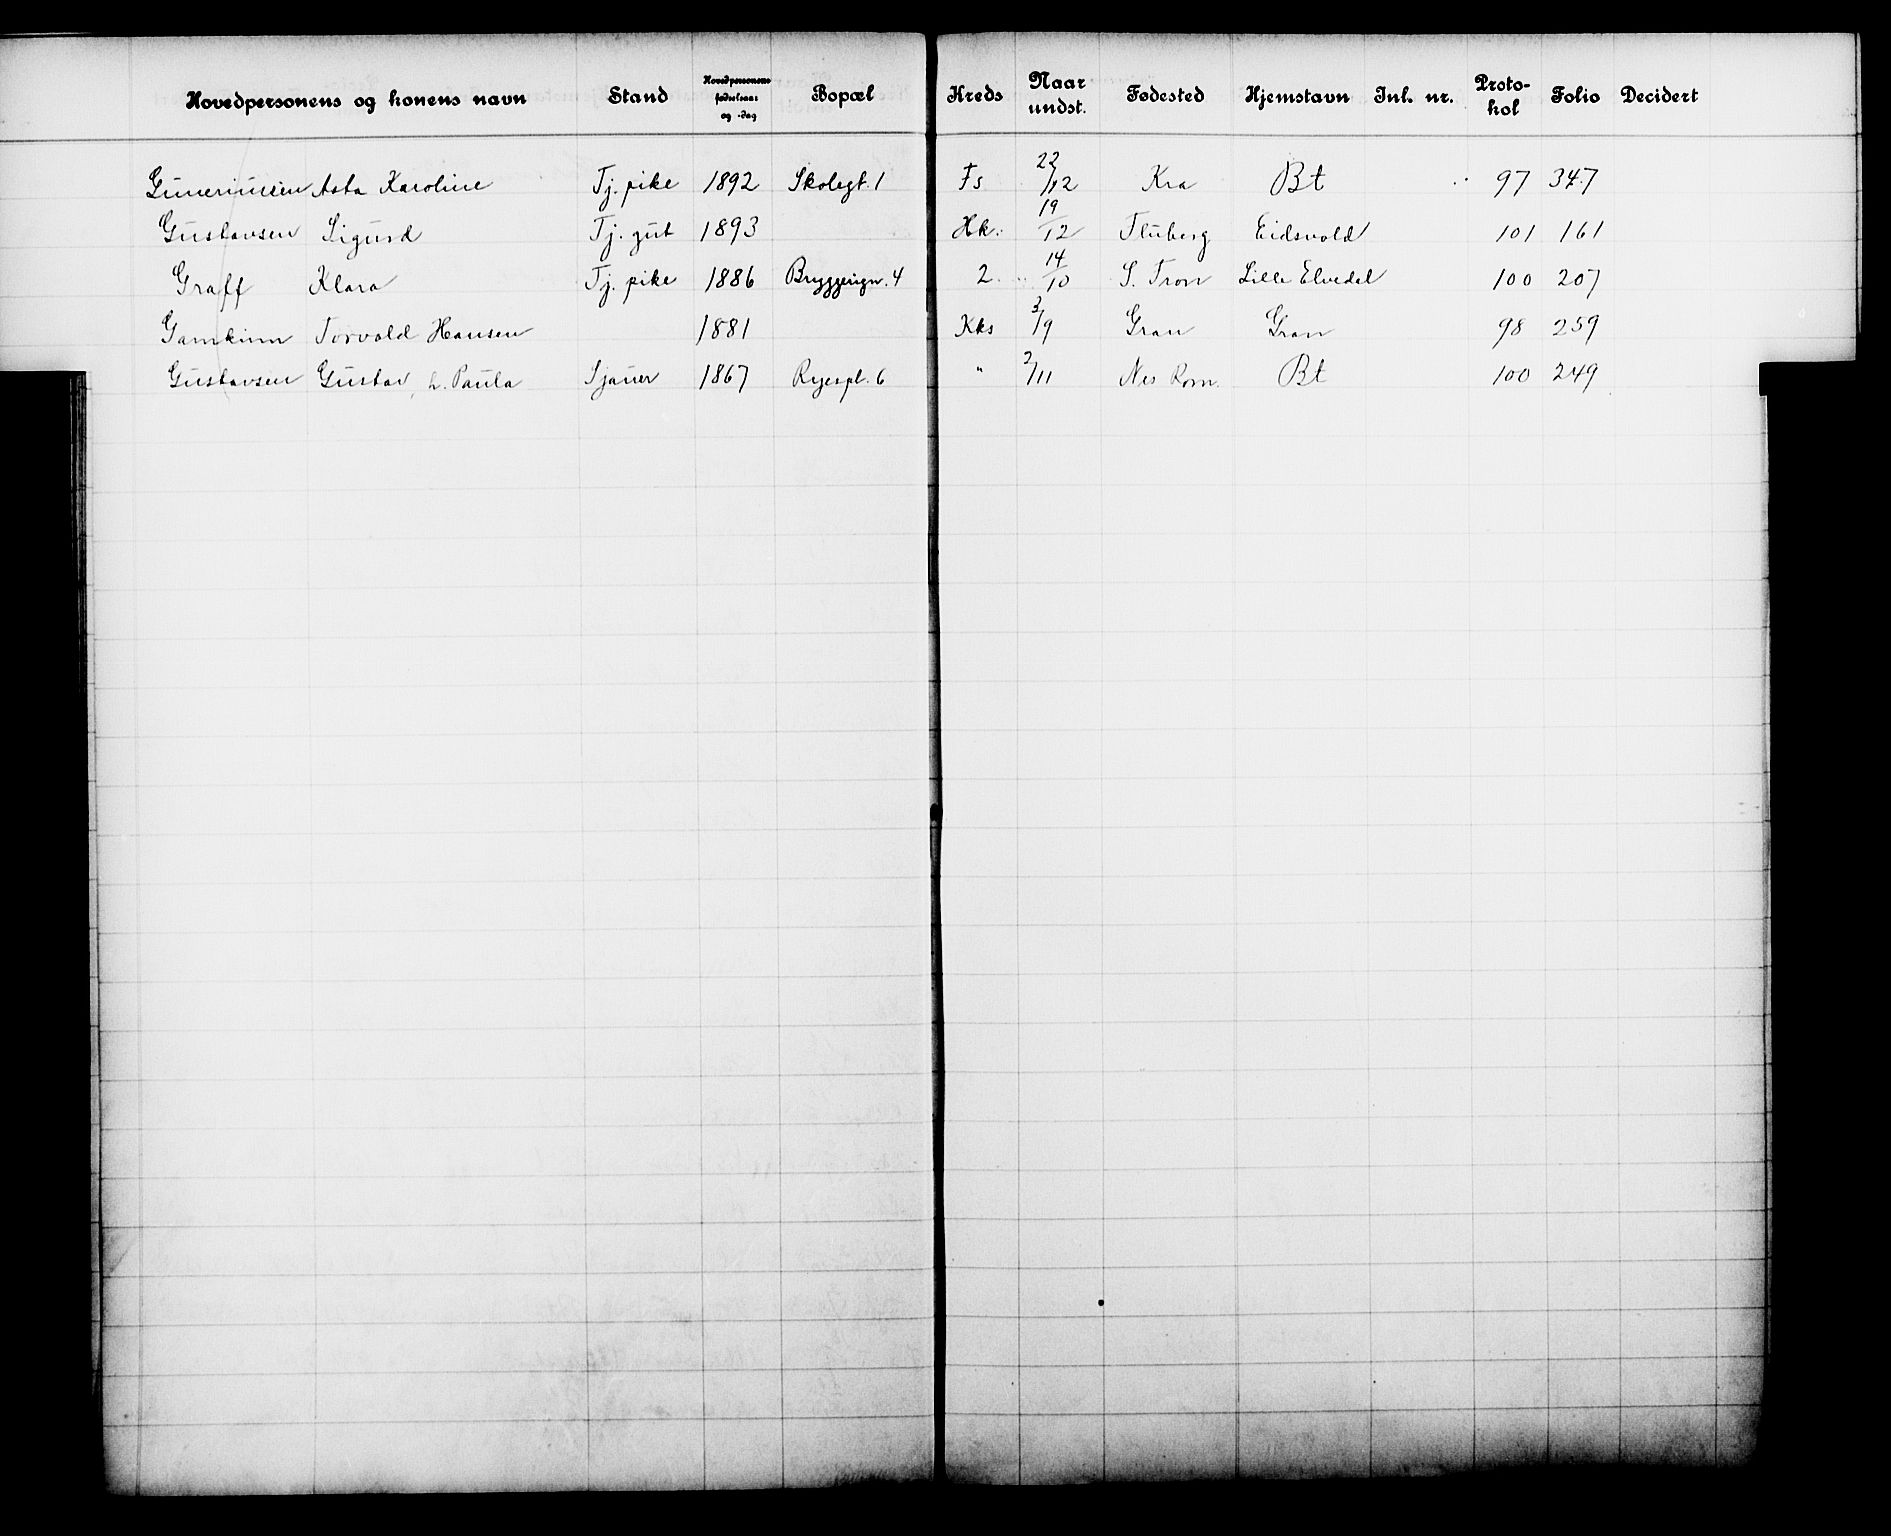 Hovedpersonens og konens navn Stand Hovedpersonens fødselsaar og -dag Bopæl Kreds Naar undst. Fødested Hjemstavn Inl. nr. Protokol Folio Decidert
Asta Karoline Tj. pike 1892 Skolegt. 1 Fs 22/12 Kra Bt 97 347
Gustavsen Sigurd Tj. gut 1893 Hk. 19/12 Fluberg Eidsvold 101 161
Graff Klara Tj. pike 1886 Bryggerign. 4 2 14/10 S. Tron Lille Elvedal 100 207
Gamkinn Torvald Hansen 1881 Kks 3/9 Gran Gran 98 259
Gustavsen Gustav, h. Paula Sjauer 1867 Ryespl. 6 " 2/11 Nes Rom. Bt 100 249